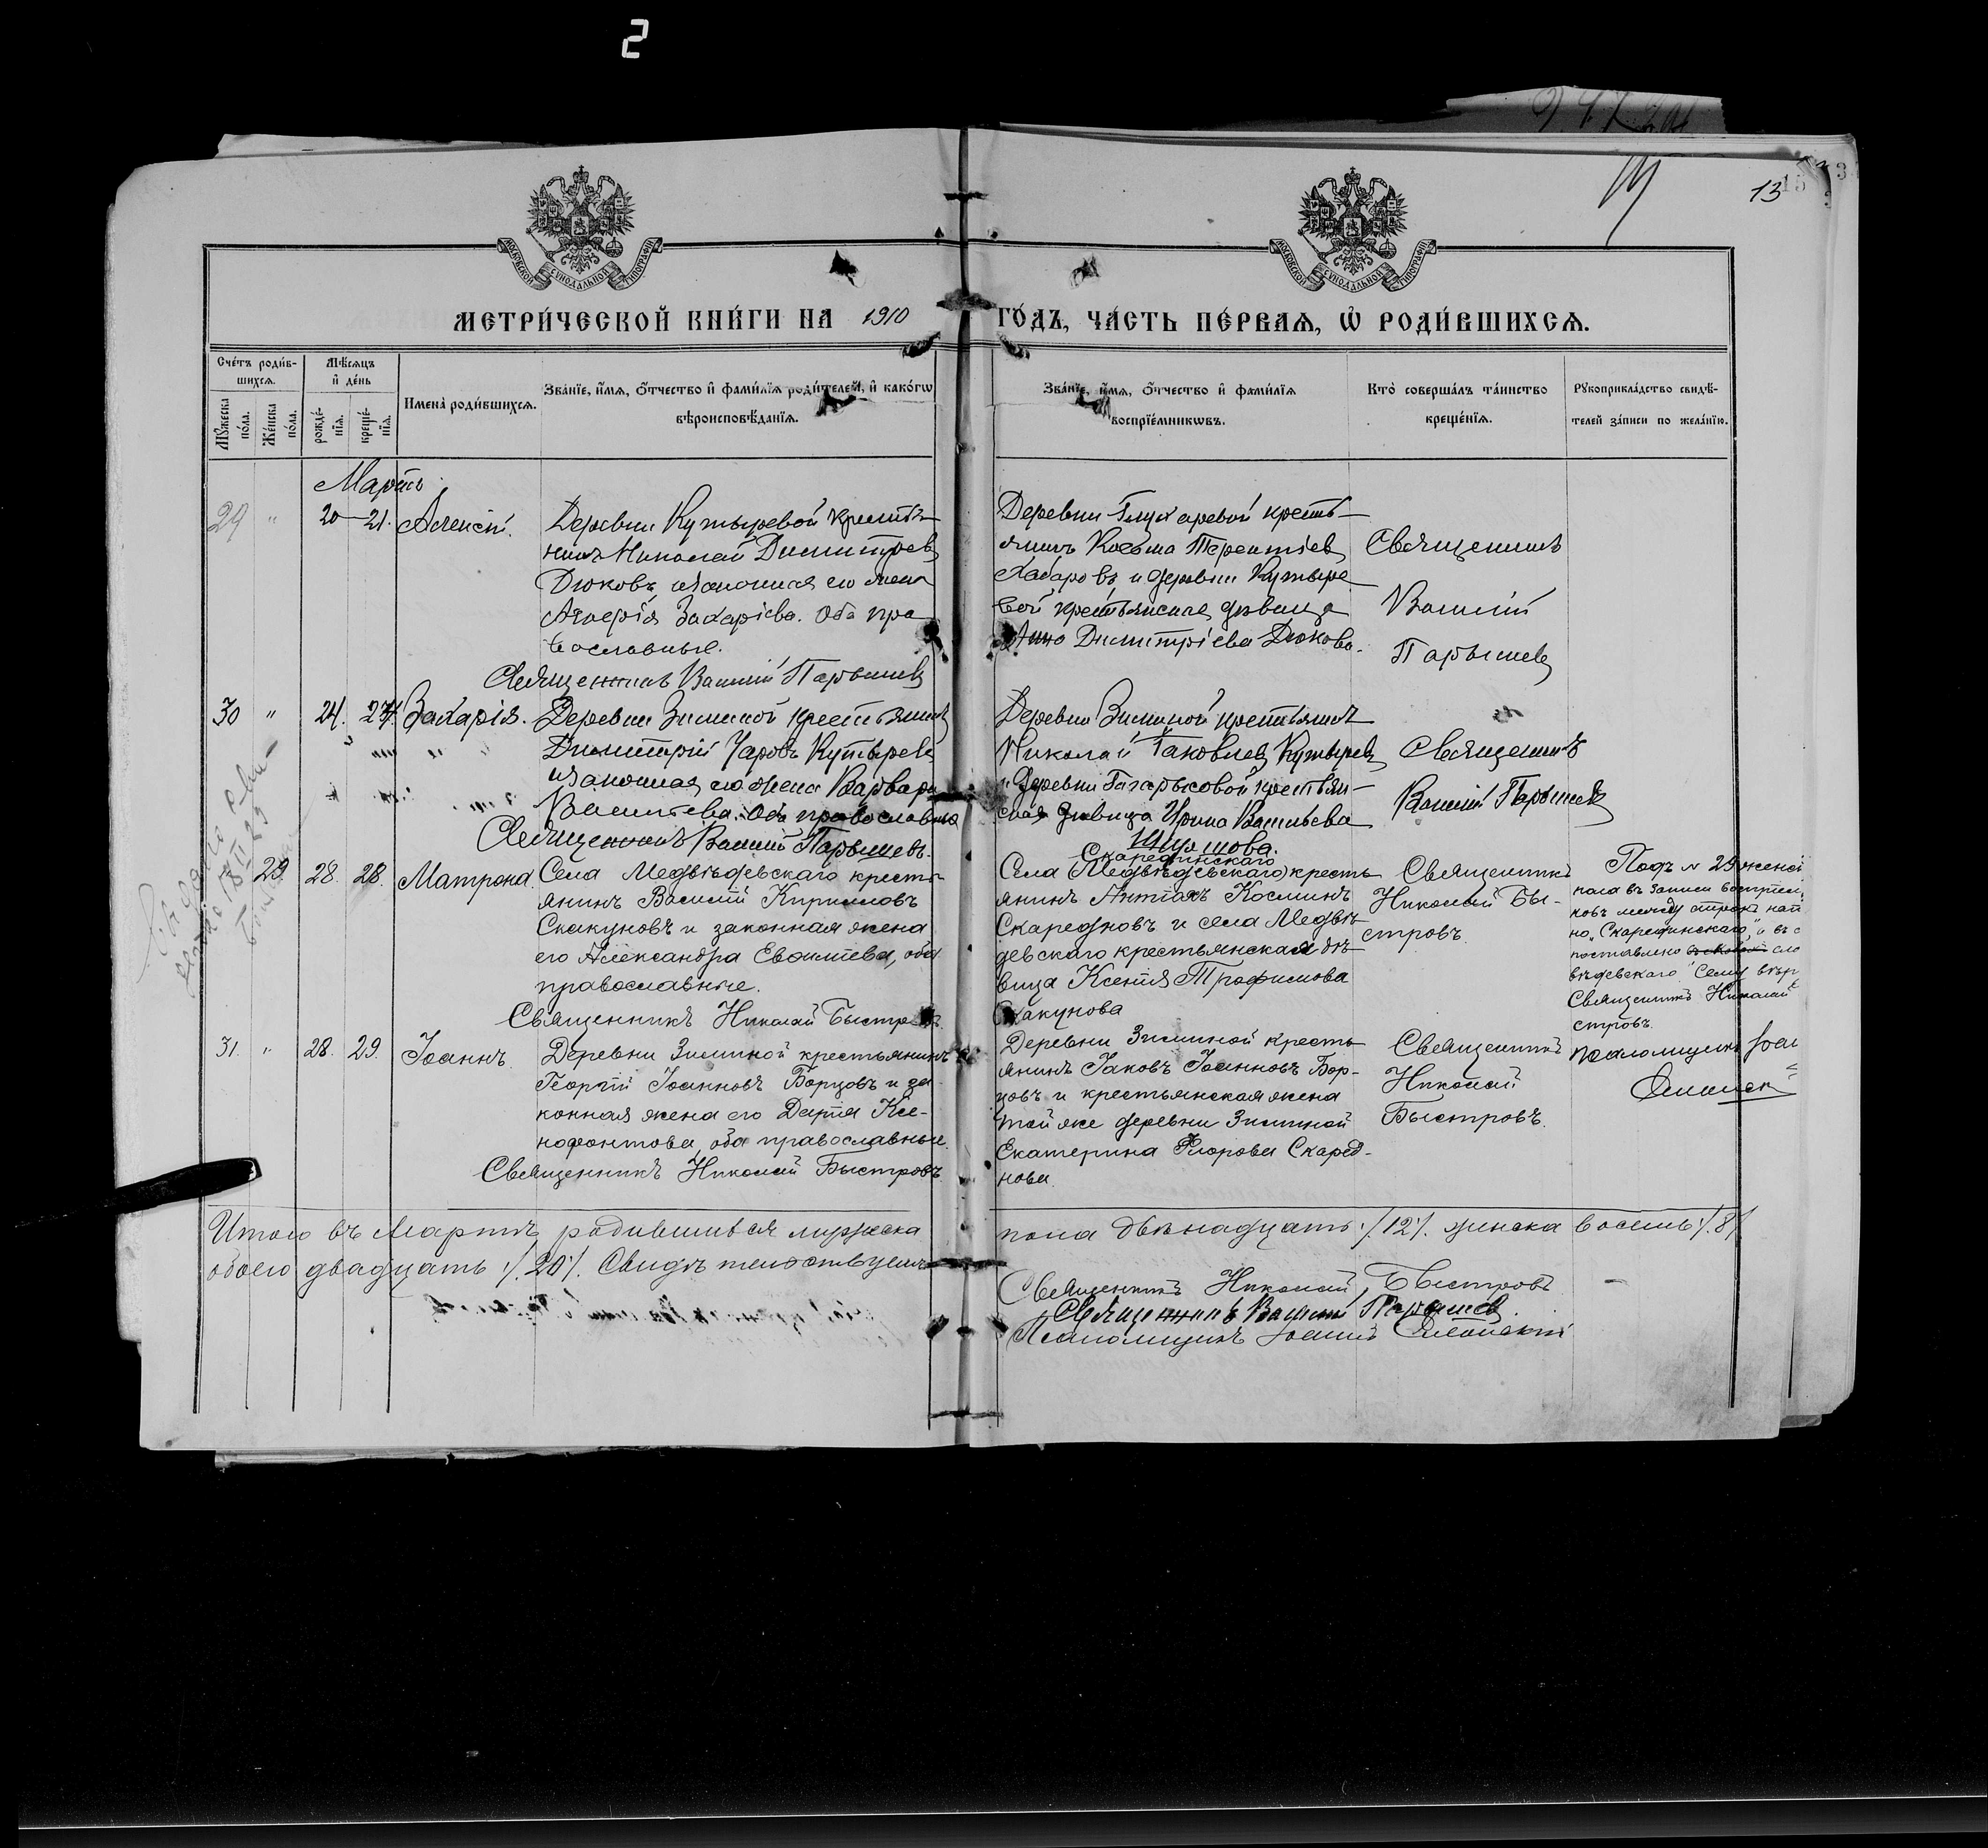 2
13
МОСКОВСКОЙ СѴНОДАЛЬНОЙ ТИПОГРАФІИ
МОСКОВСКОЙ СѴНОДАЛЬНОЙ ТИПОГРАФІИ
МЕТРИ́ЧЕСКОЙ КНИ́ГИ НА 1910 ГО́ДЪ, ЧА́СТЬ ПЕ́РВАѦ, Ѡ҆ РОДИ́ВШИХСѦ.
Сче́тъ роди́в-
шихсѧ.
Мꙋ́жеска по́ла.
Же́нска по́ла.
Мѣ́сѧцъ
и҆ де́нь
рожде́-
нїѧ.
креще́-
нїѧ.
Имена̀ роди́вшихсѧ.
Зва́нїе, и҆́мѧ, о҆́тчество и҆ фами́лїѧ роди́телей, и҆ како́гѡ
вѣроисповѣ́данїѧ.
Зва́нїе, и҆́мѧ, о҆́тчество и҆ фами́лїѧ
воспрїе́мникѡвъ.
Кто̀ соверша́лъ та́инство
креще́нїѧ.
Рꙋкоприкла́дство свидѣ́-
телей за́писи по жела́нїю.
Мартъ
29 " 20 21. Алексій.
Деревни Кутыревой кресть-
нинъ Николай Димитріев
Дюковъ, и законная его жена
Захаріева. Оба пра
вославные.
Священникъ Василій Парышев
Деревни Глухаревой кресть-
янинъ Косьма Терентіев
Хабаровъ и деревни Кутыре
вой крестьянская девица
Анна Димитріева Дюкова.
Священникъ
Василій
Парышев
30 " 24. 27. Захарія.
Деревни Зиминой крестьянинъ
Димитрій Уаровъ Кутырев
и законная его жена Варвара
Васильева. Оба православные
Священникъ Василій Парышевъ.
Деревни Зиминой крестьянинъ
Николай Іаковлев Кутырев
и деревни крестьян-
ская девица Ирина Васильева
Священникъ
Василій Парышев
29 28. 28. Матрона.
Села Медвѣдевскаго кресть-
янинъ Василій Кирилловъ
Скакуновъ и законная жена
его Александра Евсиліева, оба
православные.
Священникъ Николай Быстровъ
Скарединскаго
Села (Медвѣдевскаго) кресть
янинъ Антипъ Косминъ
Скаредновъ и села Медвѣ-
девскаго крестьянская дѣ-
вица Ксенія Трофимова
Скакунова
Священникъ
Николай Бы-
стровъ.
Подъ № 29 женск
пола въ записи воспріем
ковъ между строкъ нап
но "Скарединскаго," и въ с
поставлено сло
вѣдевскаго". Сему вѣр
Священникъ Николай
стровъ.
31. " 28. 29. Іоаннъ.
Деревни Зиминой крестьянинъ
Георгій Іоанновъ Борцовъ и за-
конная жена его Дарія Ксе-
нофонтова, оба православные
Священникъ Николай Быстровъ
Деревни Зиминой кресть
янинъ Іаковъ Іоанновъ Бор-
цовъ и крестьянская жена
той же деревни Зиминой
Екатерина Флорова Скаред-
нова.
Священникъ
Николай
Быстровъ.
Псаломщикъ Іоан
Итого въ Мартѣ родившихся мужеска пола двѣнадцать ·/. 12 ·/. женска восемь ·/. 8 ·/.
обоего двадцать ·/. 20 ·/. Свидѣтельствуемъ
Священникъ Николай Быстровъ
Священникъ Василій Парышев.
Псаломщикъ Іоаннъ